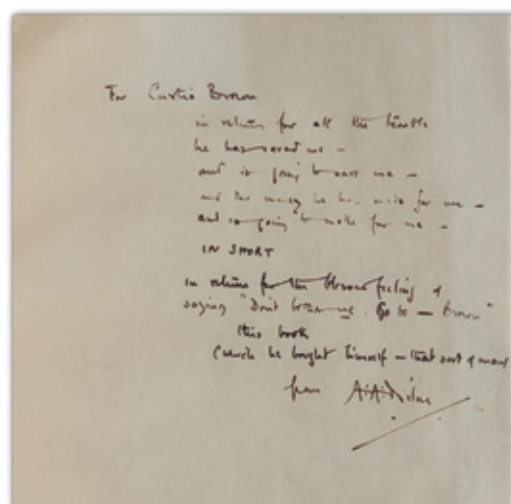 For Curtis Brown
in return for all the trouble
he has saved me –
and is going to save me –
and the money he has made for me –
and is going to make for me –
IN SHORT
in return for the blessed feeling of
saying "Don't bother me. Go to — Brown"
this book
(which he bought himself – that sort of man)
from A.A. Milne